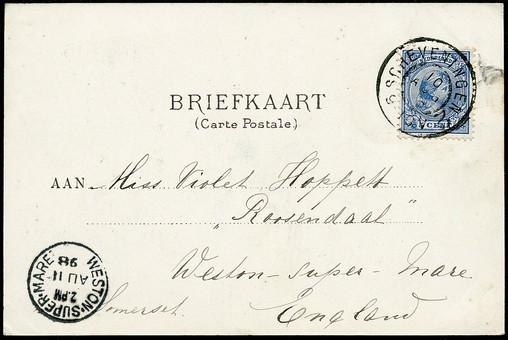 BRIEFKAART
(Carte Postale.)
SCHEVENINGEN
CENT
AAN Miss Violet Hoppett
„Roosendaal"
Weston-super-Mare
Somerset. England
WESTON-SUPER-MARE
2.PM
AU 11
98